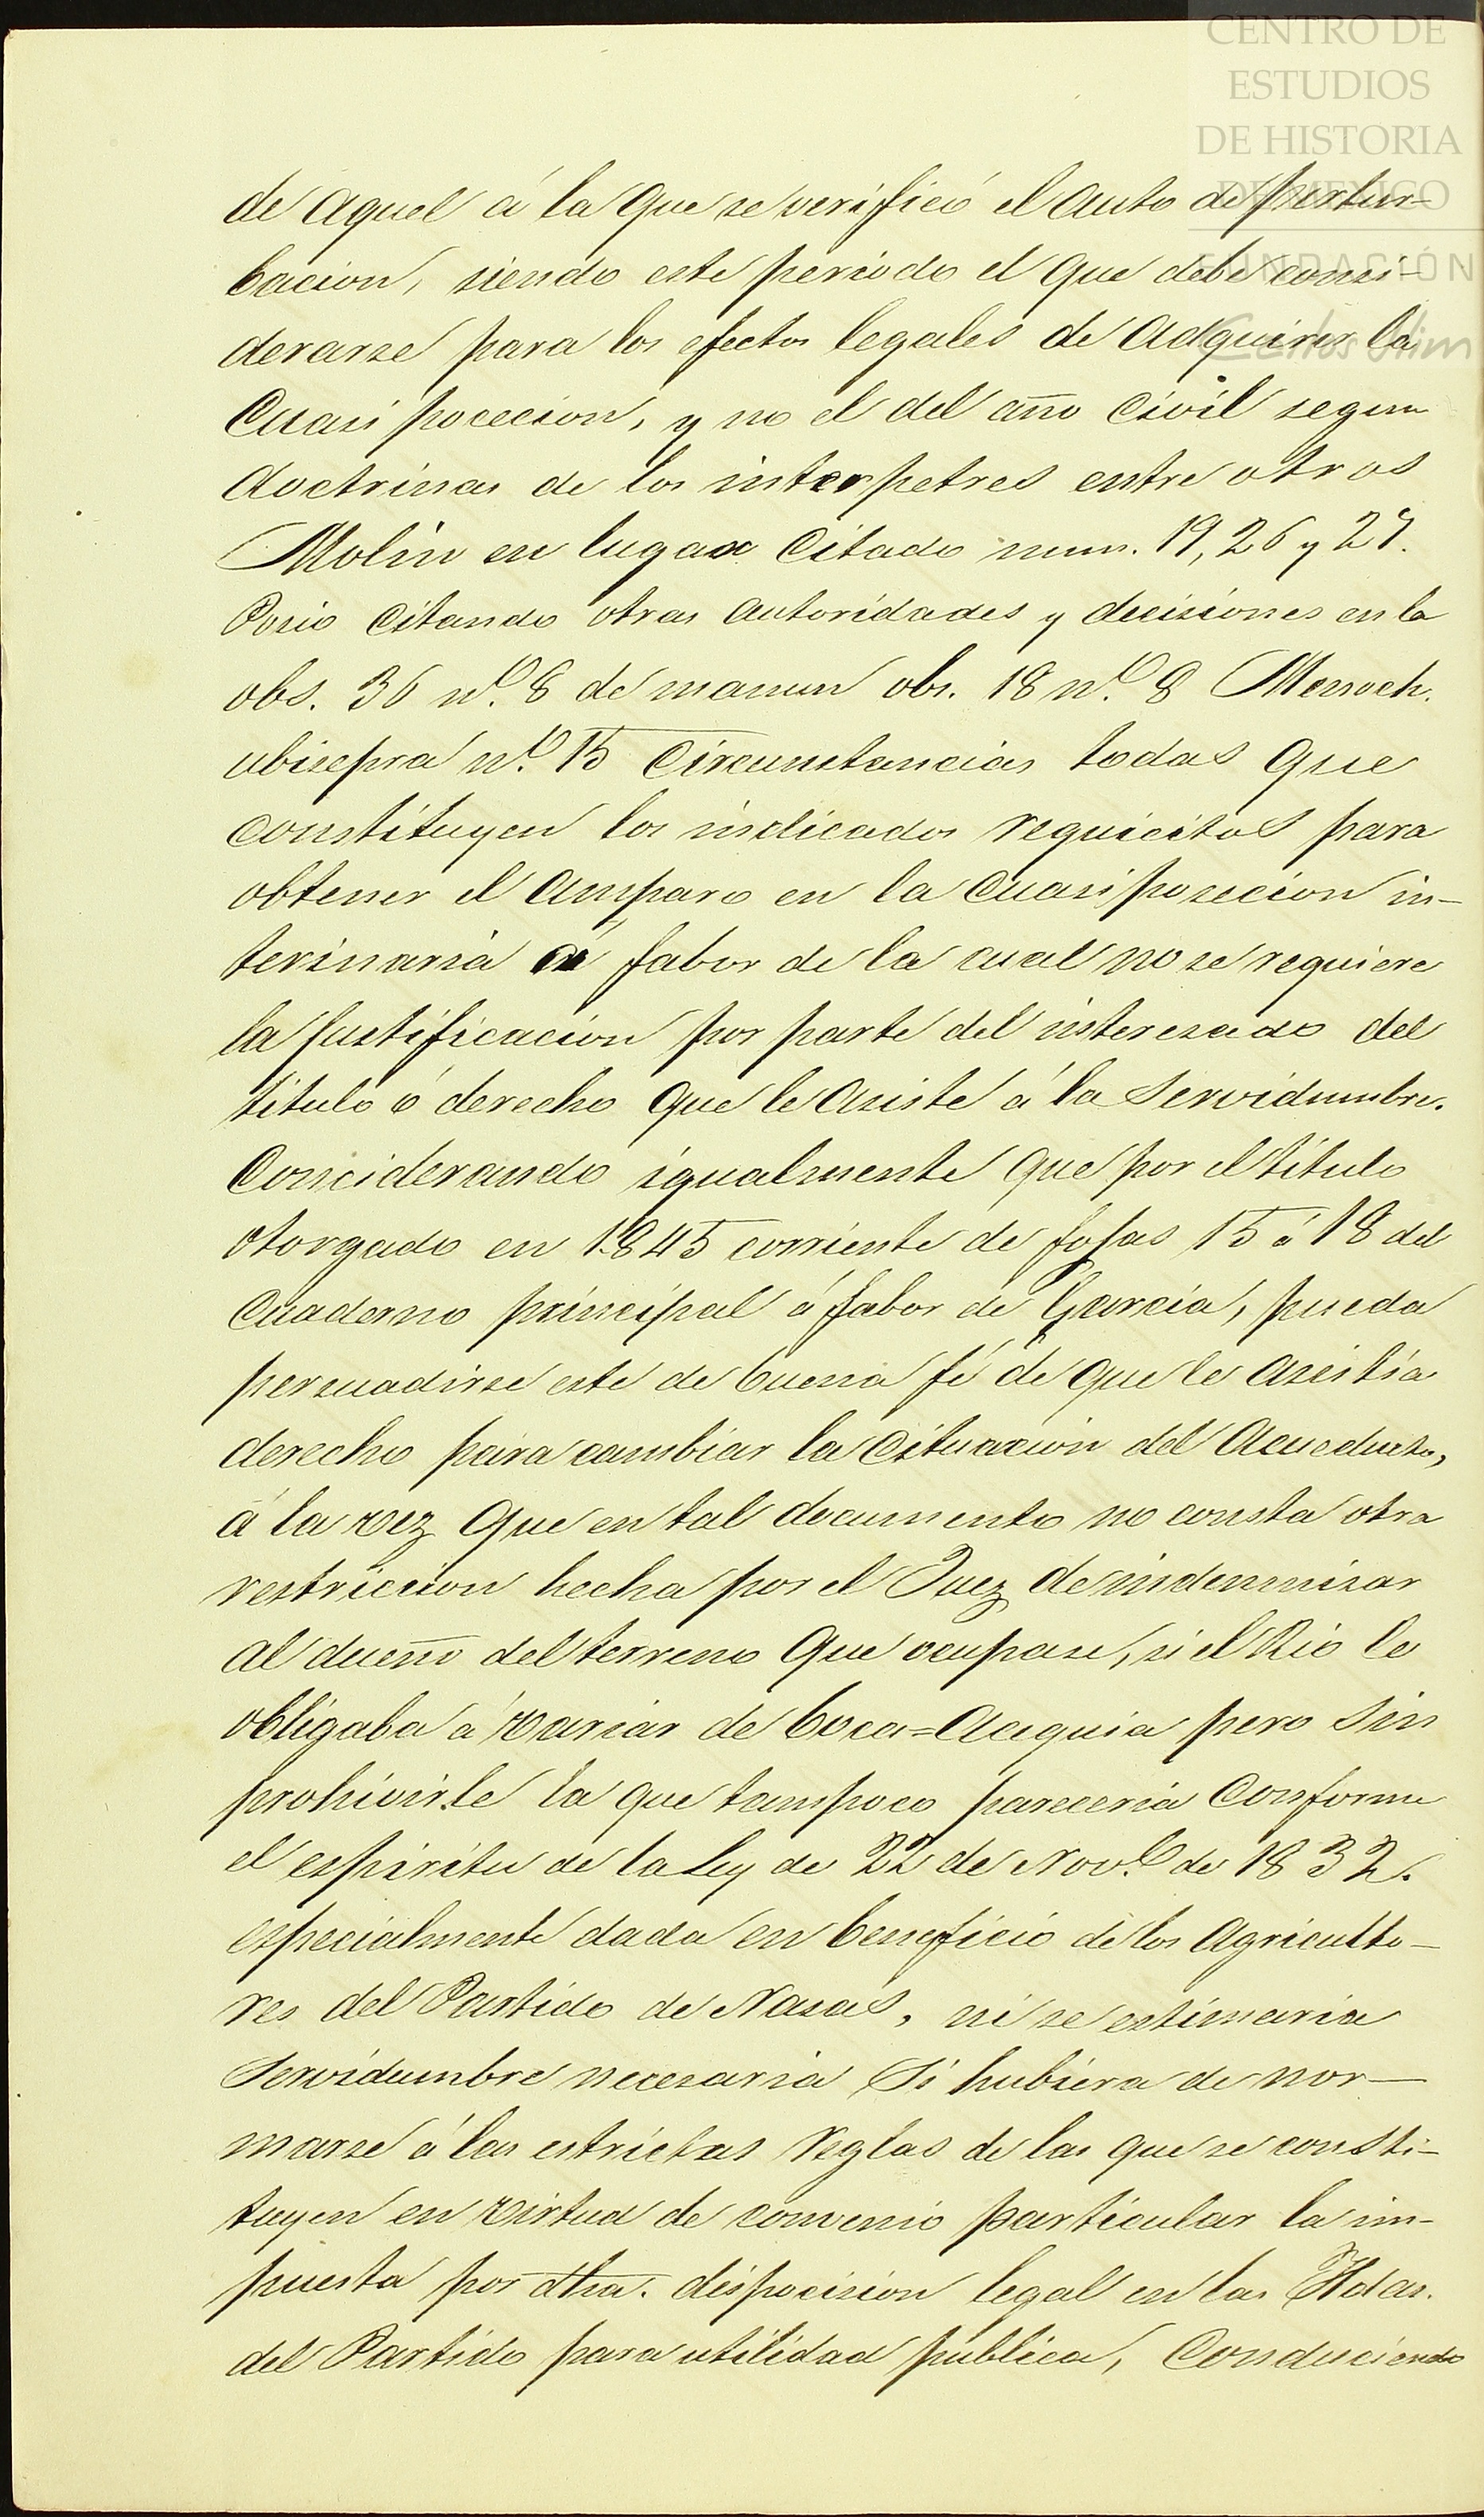 CENTRO DE
ESTUDIOS
DE HISTORIA
DE MEXICO
FUNDACIÓN
Carlos Slim
de aquel á la que se verificó el auto de pertur-
bacion, siendo este periodo el que debe consi-
derarse para los efectos legales de adquirir la
Cuasi pocecion, y no el del año civil segun
doctrinas de los interpetres entre otros
Molin en lugar Citado num. 19, 26 y 27.
Posio Citando otras autoridades y decisiones en la
obs. 36 nº. 8 de manun obs. 18 nº. 8 Menoch.
ubisepra nº. 15 Circunstancias todas que
constituyen los indicados requicitos para
obtener el amparo en la cuasi posecion in-
terinaria á fabor de la cual no se requiere
la justificacion por parte del interesado del
titulo ó derecho que le asiste á la Servidumbre.
Conciderando igualmente que por el titulo
otorgado en 1845 corriente de fojas 15 á 18 del
Cuaderno principal á fabor de Garcia, pueda
persuadirse este de buena fé de que le asistia
derecho para cambiar la Cituacion del Acueducto,
á la vez que en tal documento no consta otra
restriccion hecha por el Juez de indemnisar
al dueño del terreno que ocupase, si el Rio lo
obligaba á variar de boca=acequia pero sin
prohivirle la que tampoco pareceria Conforme
el espiritu de la Ley de 22 de Novº. de 1832.
especialmente dada en beneficio de los Agriculto-
res del Partido de Nasas, ni se estimaria
Servidumbre necesaria si hubiera de nor-
marse á las estrictas reglas de las que se consti-
tuyen en virtud de convenio particular la im-
puesta por dha. dispocision legal en las Hdas.
del Partido para utilidad publica, Conduciendo